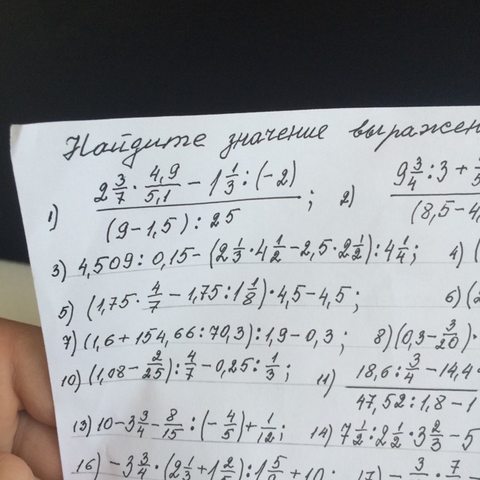 Найдите значение выражен
1) (2 3/7 · 4,9/5,1 − 1 1/3 : (−2)) / ((9−1,5) : 25) ; 2) (9 3/4 : 3 + / (8,5−4,
3) 4,509 : 0,15 − (2 1/3 · 4 1/2 − 2,5 · 2 1/2) : 4 1/4 ; 4) (
5) (1,75 · 4/7 − 1,75 : 1 1/8) · 4,5 − 4,5 ; 6) (
7) (1,6 + 154,66 : 70,3) : 1,9 − 0,3 ; 8) (0,3 − 3/20) ·
10) (1,08 − 2/25) : 4/7 − 0,25 : 1/3 ; 11) (18,6 : 3/4 − 14,4 / 47,52 : 1,8 − 1
13) 10 − 3 3/4 − 8/15 : (−4/5) + 1/12 ; 14) 7 1/2 : 2 1/2 · 3 2/3 − 5
16) −3 3/4 · (2 1/3 + 1 2/5) : 1 5/9 + 10 ; 17) − 3/ · 7/